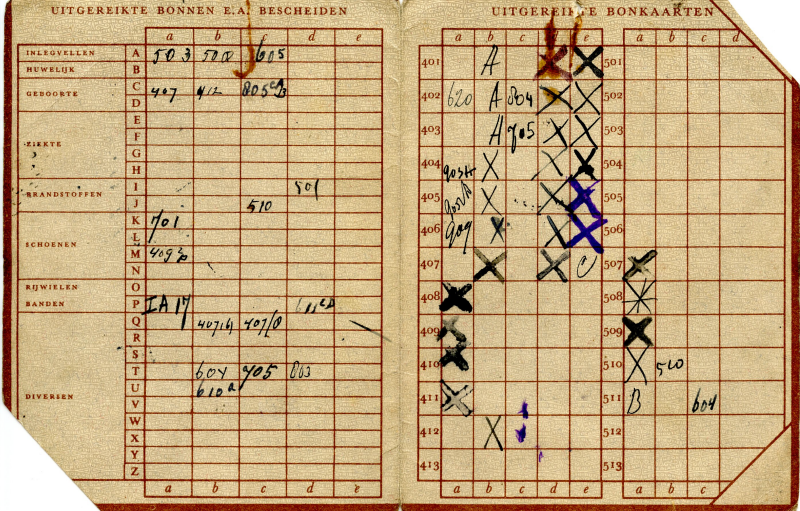 UITGEREIKTE BONNEN E.A. BESCHEIDEN
a b c d e
INLEGVELLEN A 503 500 605
HUWELIJK B
GEBOORTE C 407 412 805
D
E
ZIEKTE F
G
H
BRANDSTOFFEN I 501
J 510
K 701
SCHOENEN L
M 409
N
RIJWIELEN O
BANDEN P IA 17
Q 407 407/8
R
S
T 604 705 803
DIVERSEN U 610a
V
W
X
Y
Z
a b c d e
UITGEREIKTE BONKAARTEN
a b c d e a b c d
401 A X X 501
402 620 A 804 X X 502
403 A 905 X X 503
404 903 X X X 504
405 X X X 505
406 909 X X X 506
407 X X 507 X
408 X 508 X
409 X 509 X
410 X 510 X 510
411 X 511 B 604
412 X 512
413 513
a b c d e a b c d